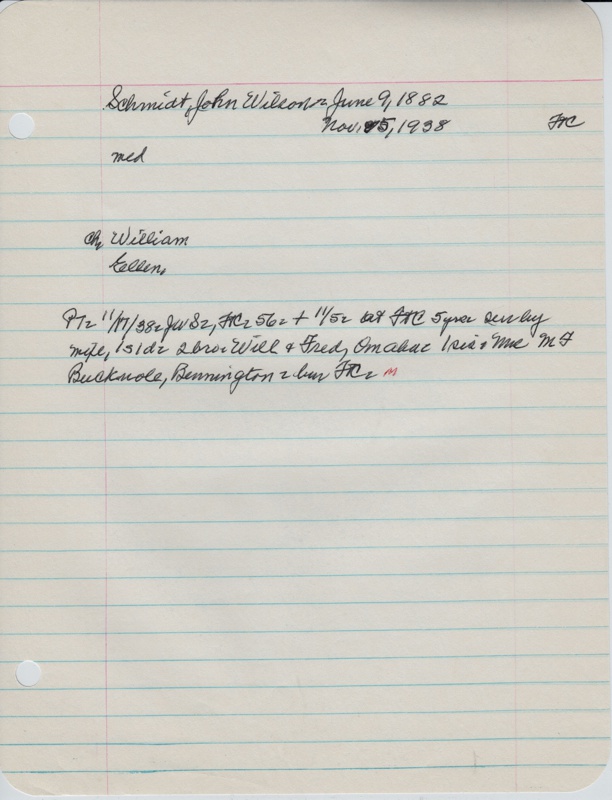 Schmidt, John Wilson, June 9, 1882
Nov. 5, 1938 FtC
md
ch, William
Ellen,
11/17/38, JWS, FtC, 56, + 11/5, at FtC 5 yrs surv by
wife, 1s 1d, 2 bro, Will & Fred, Omaha, 1 sis, Mrs M F
Bucknole, Bennington, bur FtC, M